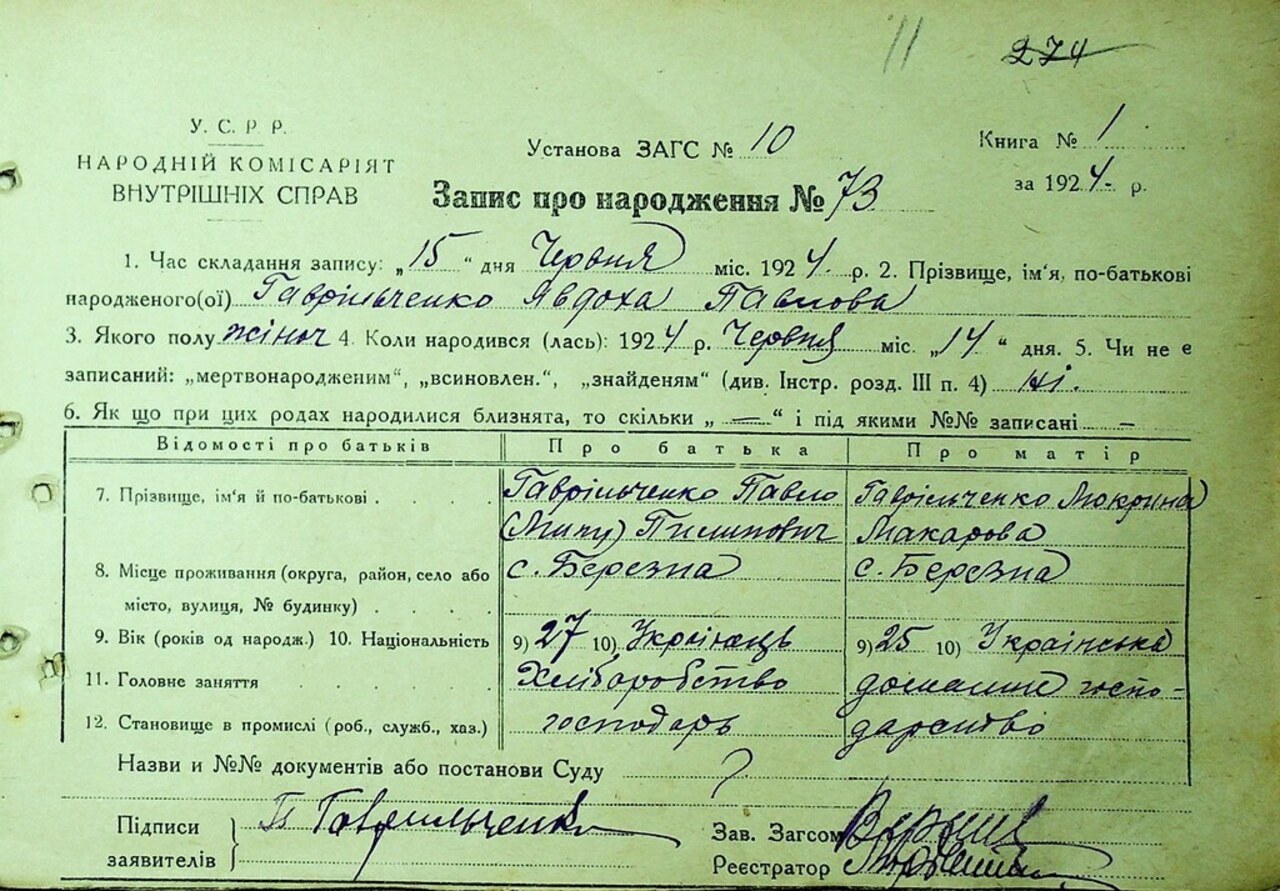 11 274
У. С. Р. Р.
НАРОДНІЙ КОМІСАРІЯТ
ВНУТРІШНІХ СПРАВ
Установа ЗАГС № 10
Книга № 1
за 1924 р.
Запис про народження № 73
1. Час складання запису: „15“ дня Червня міс. 1924. р. 2. Прізвище, ім'я, по-батькові
народженого(ої) Гаврильченко Явдоха Павлова
3. Якого полу жіноч 4. Коли народився (лась): 1924 р. Червня міс. „14“ дня. 5. Чи не є
записаний: „мертвонародженим“, „всиновлен.“, „знайденям“ (див. Інстр. розд. III п. 4) ні.
6. Як що при цих родах народилися близнята, то скільки „—“ і під якими №№ записані —
Відомості про батьків Про батька Про матір
7. Прізвище, ім'я й по-батькові . . . . Гаврільченко Павло Гаврільченко Мокрина
Пилипович Макарова
8. Місце проживання (округа, район, село або с. Березна с. Березна
місто, вулиця, № будинку) . . . .
9. Вік (років од народж.) 10. Національність 9) 27 10) Українець 9) 25 10) Українська
11. Головне заняття . . . . . Хліборобство домашнє госпо-
12. Становище в промислі (роб., служб., хаз.) господарь дарство
Назви и №№ документів або постанови Суду ?
Підписи П Гаврильченко Зав. Загсом
заявителів Реєстратор